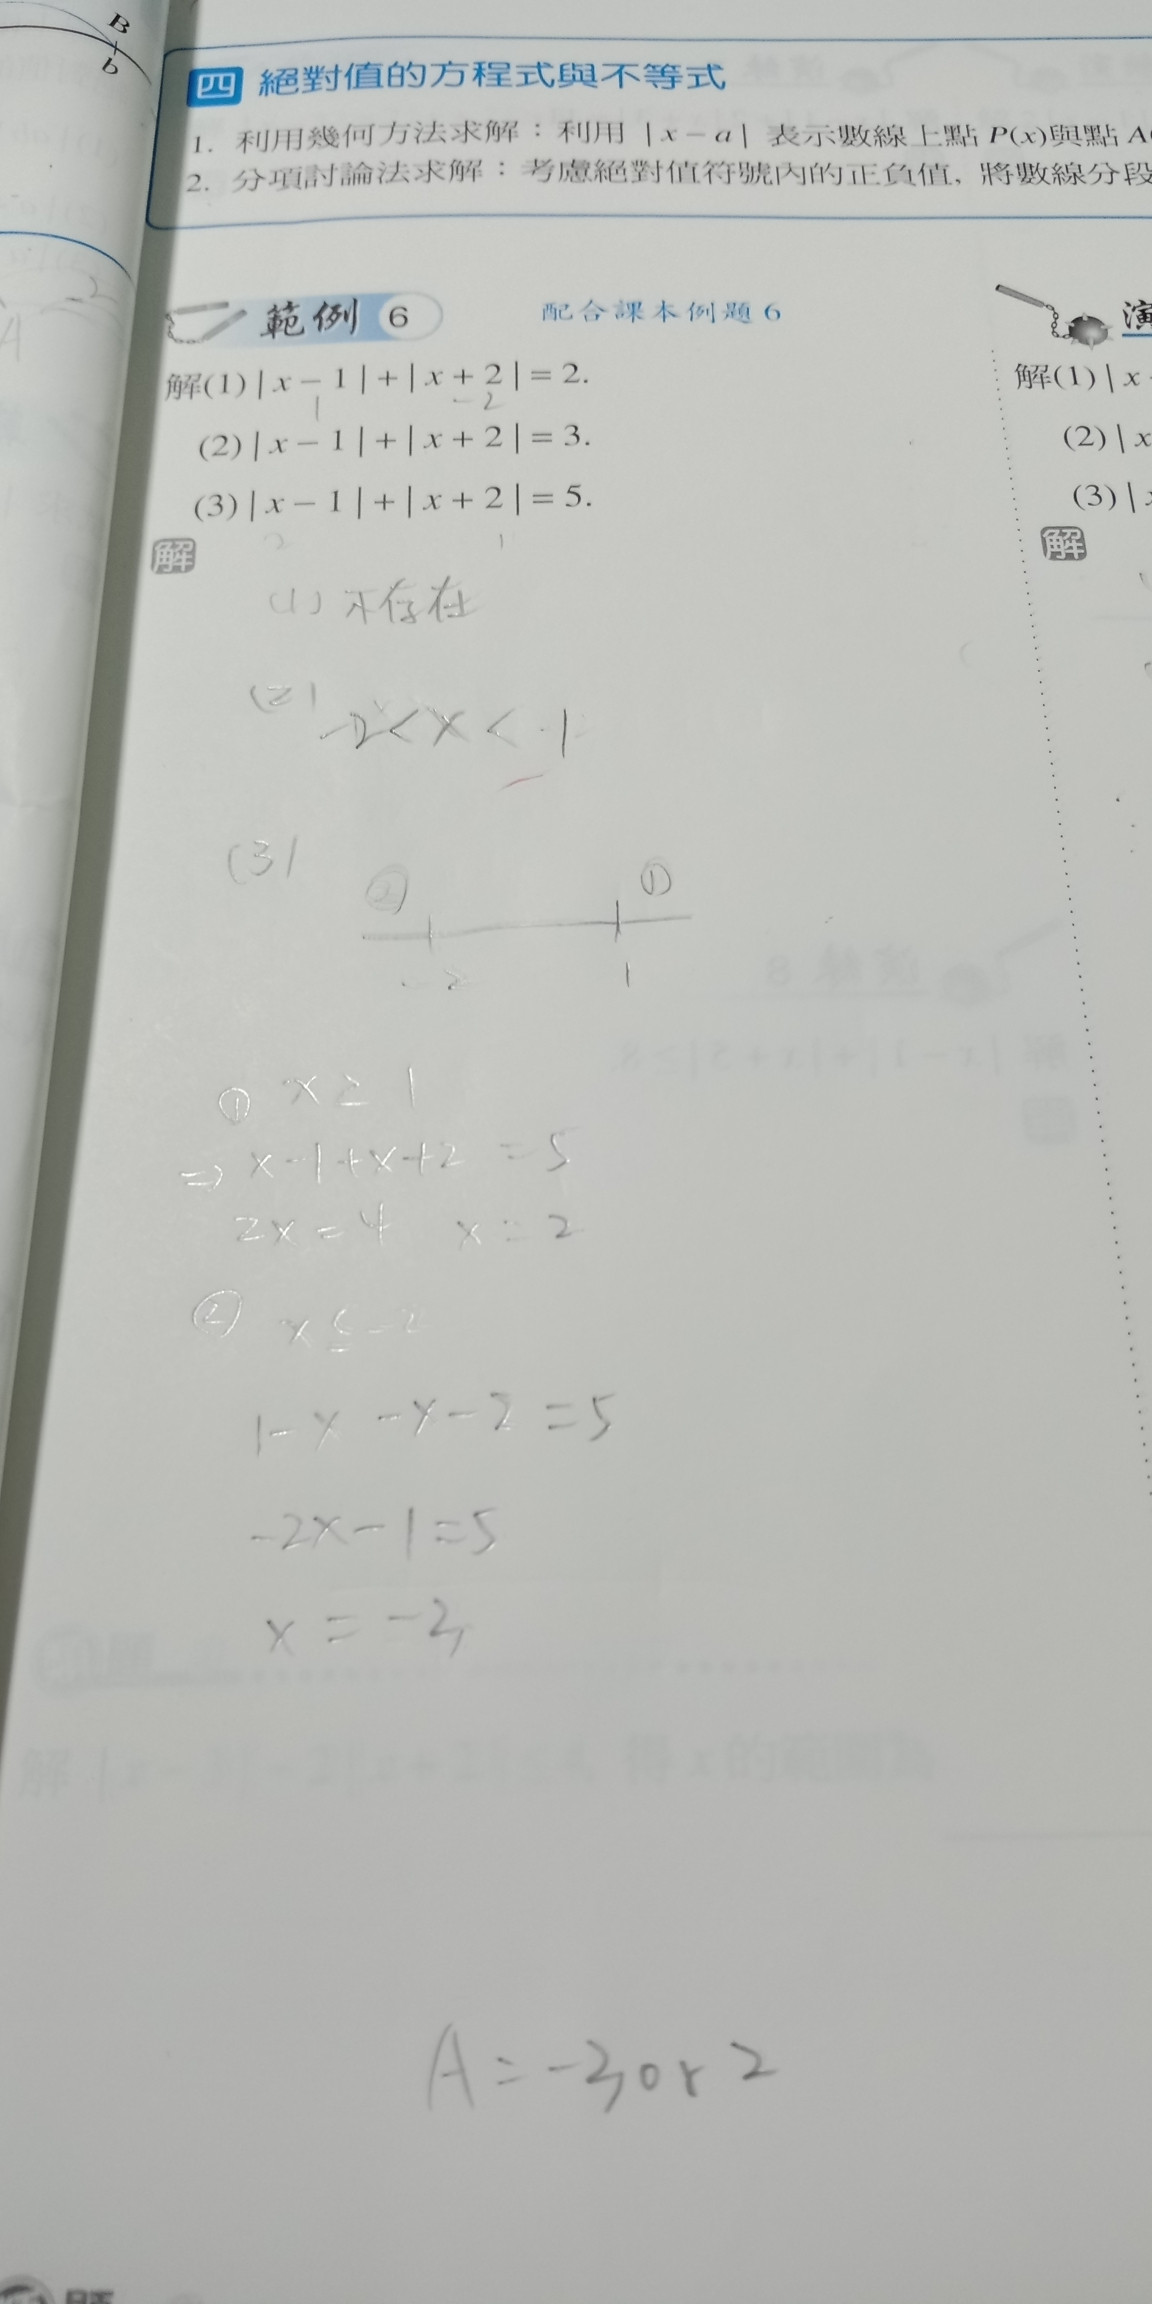 B
b
四 絕對值的方程式與不等式
1. 利用幾何方法求解：利用 |x－a| 表示數線上點 P(x)與點 A
2. 分項討論法求解：考慮絕對值符號內的正負值，將數線分段
範例 6 配合課本例題 6
解(1)|x－1|＋|x＋2|＝2.
1 -2
(2)|x－1|＋|x＋2|＝3.
(3)|x－1|＋|x＋2|＝5.
解
(1) 不存在
(2) -2<x<1
(3)
② ①
-2 1
① x≥1
⇒ x-1+x+2=5
2x=4 x=2
② x≤-2
1-x-x-2=5
-2x-1=5
x=-3
A=-3 or 2
演
解(1)|x
(2)|x
(3)|x
解